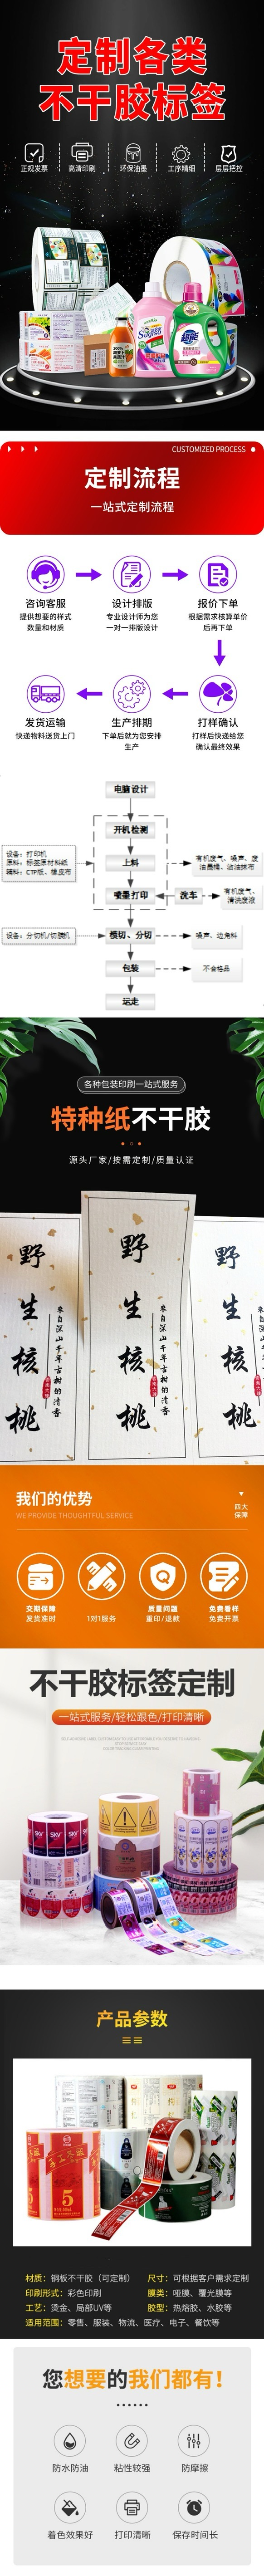 定制各类
不干胶标签
正规发票
高清印刷
环保油墨
工序精细
层层把控
CUSTOMIZED PROCESS
定制流程
一站式定制流程
咨询客服
提供想要的样式
数量和材质
设计排版
专业设计师为您
一对一排版设计
报价下单
根据需求核算单价
后再下单
发货运输
快递物料送货上门
生产排期
下单后就为您安排
生产
打样确认
打样后快递给您
确认最终效果
电脑设计
开机检测
设备：打印机
原料：标签原材料纸
辅料：CTP版、橡皮布
上料
有机废气、噪声、废
油墨桶、沾油抹布
喷墨打印
洗车
有机废气、
清洗废液
设备：分切机/切膜机
模切、分切
噪声、边角料
包装
不合格品
运走
各种包装印刷一站式服务
特种纸不干胶
源头厂家/按需定制/质量认证
野生核桃
来自深山千年古树的清香
野生核桃
来自深山千年古树的清香
野生核桃
来自深山千年古树的清香
我们的优势
WE PROVIDE THOUGHTFUL SERVICE
四大
保障
交期保障
发货准时
1对1服务
质量问题
重印/退款
免费看样
免费开票
不干胶标签定制
一站式服务/轻松跟色/打印清晰
SKY
SKY
产品参数
5
材质：铜板不干胶（可定制）
尺寸：可根据客户需求定制
印刷形式：彩色印刷
膜类：哑膜、覆光膜等
工艺：烫金、局部UV等
胶型：热熔胶、水胶等
适用范围：零售、服装、物流、医疗、电子、餐饮等
您想要的我们都有！
防水防油
粘性较强
防摩擦
着色效果好
打印清晰
保存时间长